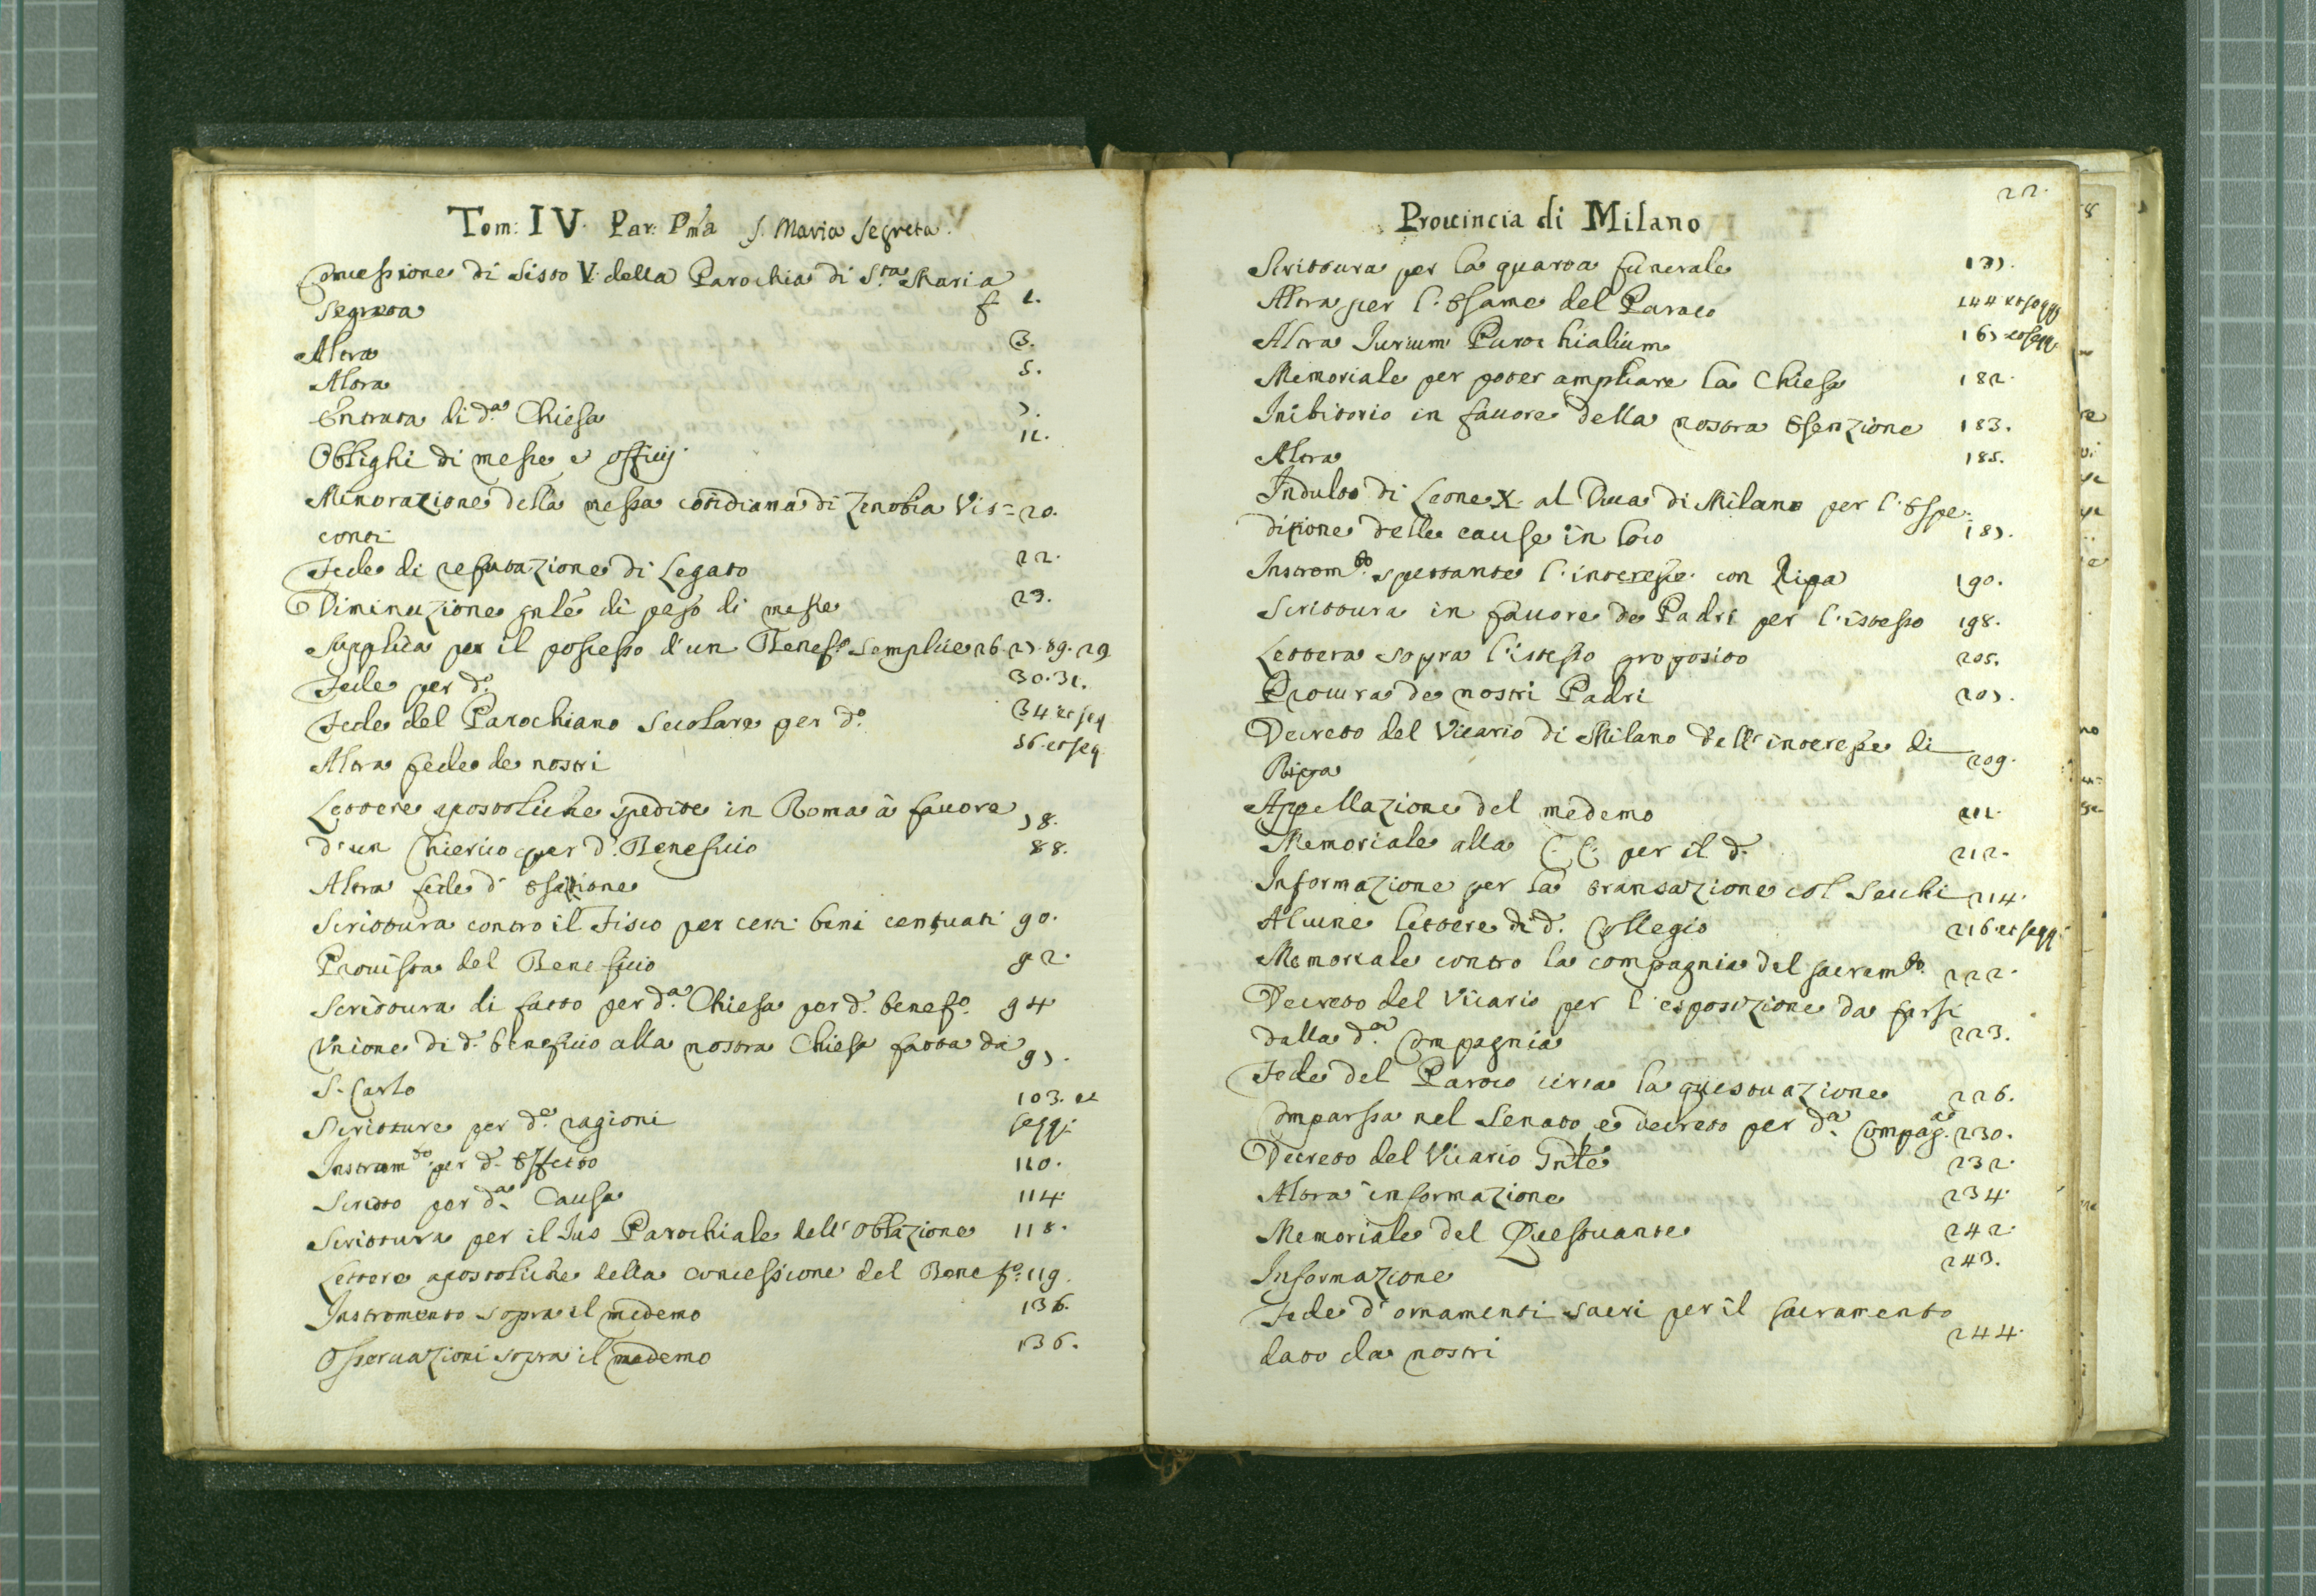 Tom: IV. Par: Pma S. Maria Segreta.
Concessione di Sisto V. della Parochia di S.ta Maria
Segreta f 1.
Altra 3.
Altra 5.
Entrata di d.a Chiesa 7.
Oblighi di messe e officij 11.
Minorazione della messa cotidiana di Zenobia Vis= 20.
conti
Fede di refutazione di Legato 22.
Diminuzione gnle di peso di messe 23.
Supplica per il possesso d'un Benef.o semplice 26. 27. 89. 29
Fede per d.o 30. 31.
Fede del Parochiano secolare per d.o 34 et seq
Altra fede de nostri 56. et seq
Lettere apostoliche spedite in Roma à favore
d'un Chierico per d.o Beneficio 78.
Altra fede d' 88.
Scrittura contro il Fisco per certi beni 90.
Provista del Beneficio 92.
Scrittura di fatto per d.a Chiesa per d.o benef.o 94
Vnione di d.o beneficio alla nostra Chiesa fatta da
S. Carlo 97.
Scritture per d.e ragioni 103. et seqq:
Instrum.to per d.o Effetto 110.
Scritto per d.a Causa 114
Scrittura per il Jus Parochiale dell' oblazione 118.
Lettere apostoliche della concessione del Benef.o 119.
Instromento sopra il medemo 136.
Osservazioni sopra il medemo 136.
22.
Prouincia di Milano
Scrittura per la quarta funerale 137.
Altra per l'Esame del Paroco 144 et seqq
Altra Jurium Parochialium 167 et seqq
Memoriale per poter ampliare la Chiesa 182.
Inibitorio in fauore della nostra Esenzione 183.
Altra 185.
Indulto di Leone X. al Duca di Milano per l'Espe=
dizione delle cause in loco 187.
Instrom.to spettante l'interesse con Ripa 190.
Scrittura in fauore de Padri per l'istesso 198.
Lettera sopra l'istesso proposito 205.
Procura de nostri Padri 207.
Decreto del Vicario di Milano dell' interesse di
Ripa 209.
Appellazione del medemo 211.
Memoriale alla C. C. per il d.o 212.
Informazione per la transazione col Secchi 214.
Alcune lettere di d.o Collegio 216 et seqq.
Memoriale contro la compagnia del sacram.to 222.
Decreto del Vicario per l'esposizione da farsi
dalla d.a Compagnia 223.
Fede del Paroco circa la questuazione 226.
Comparsa nel Senato, e decreto per d.a Compag.a 230.
Decreto del Vicario Gnle 232.
Altra informazione 234.
Memoriale del Questuante 242.
Informazione 243.
Fede d'ornamenti sacri per il sacramento
dato da nostri 244.